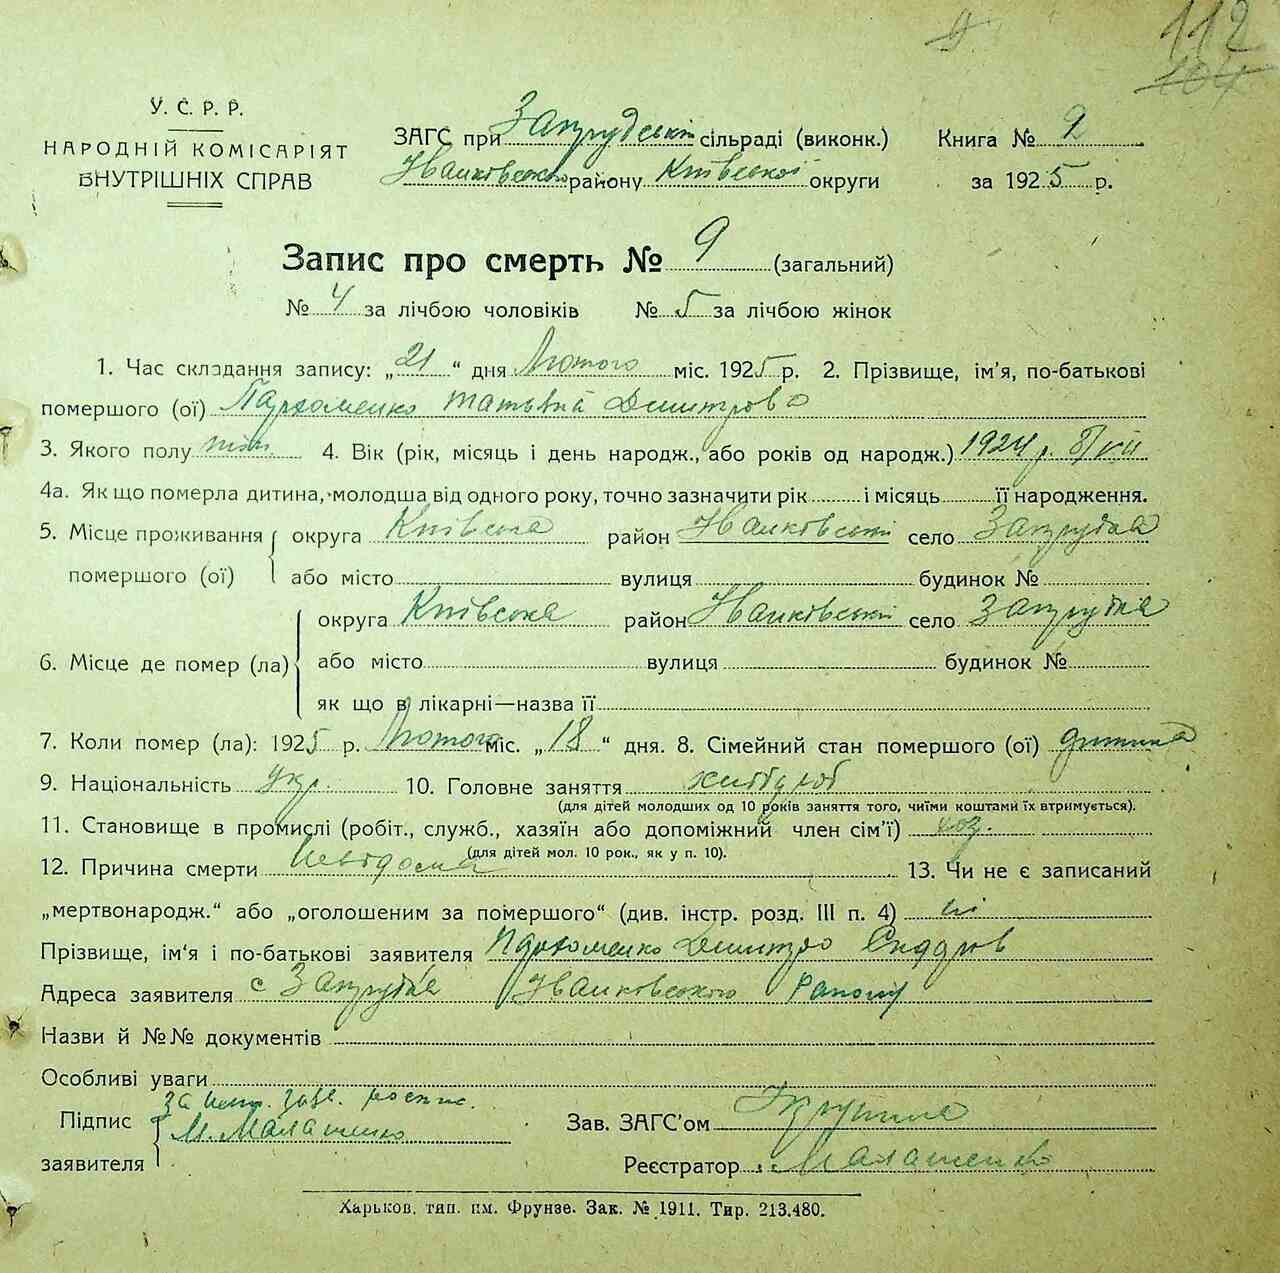 112
104
У. С. Р. Р.
НАРОДНІЙ КОМІСАРІЯТ
ВНУТРІШНІХ СПРАВ
ЗАГС при Запрудській сільраді (виконк.)
Іванковського району Київської округи
Книга № 2
за 1925 р.
Запис про смерть № 9 (загальний)
№ 4 за лічбою чоловіків № 5 за лічбою жінок
1. Час складання запису: „21“ дня Лютого міс. 1925 р. 2. Прізвище, ім'я, по-батькові
помершого (ої) Пархоменко Татьяна Дмитрова
3. Якого полу жін. 4. Вік (рік, місяць і день народж., або років од народж.) 1924 р. 8/VII
4а. Як що померла дитина, молодша від одного року, точно зазначити рік і місяць її народження.
5. Місце проживання помершого (ої) округа Київська район Іванковський село Запрудка
або місто вулиця будинок №
6. Місце де помер (ла) округа Київська район Іванковський село Запрудка
або місто вулиця будинок №
як що в лікарні—назва її
7. Коли помер (ла): 1925 р. Лютого міс. „18“ дня. 8. Сімейний стан помершого (ої) дитина
9. Національність укр. 10. Головне заняття хлібороб
(для дітей молодших од 10 років заняття того, чиїми коштами їх втримується).
11. Становище в промислі (робіт., служб., хазяїн або допоміжний член сім'ї) хоз.
(для дітей мол. 10 рок., як у п. 10).
12. Причина смерти Невідома 13. Чи не є записаний
„мертвонародж.“ або „оголошеним за помершого“ (див. інстр. розд. III п. 4) ні
Прізвище, ім'я і по-батькові заявителя Пархоменко Дмитро
Адреса заявителя с Запрудка Іванковського Району
Назви й №№ документів
Особливі уваги
Підпис заявителя за роспис.
М. Малашенко
Зав. ЗАГС'ом
Реєстратор Малашенко
Харьков. тип. им. Фрунзе. Зак. № 1911. Тир. 213.480.